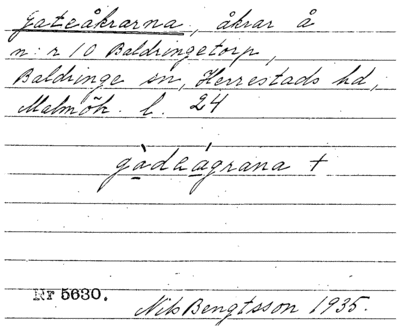 Gateåkrarna, åkrar å
n:r 10 Baldringetorp,
Baldringe sn, Herrestads hd,
Malmöh. l. 24
gàdaágrana +
Nr 5630.
Nils Bengtsson 1935.